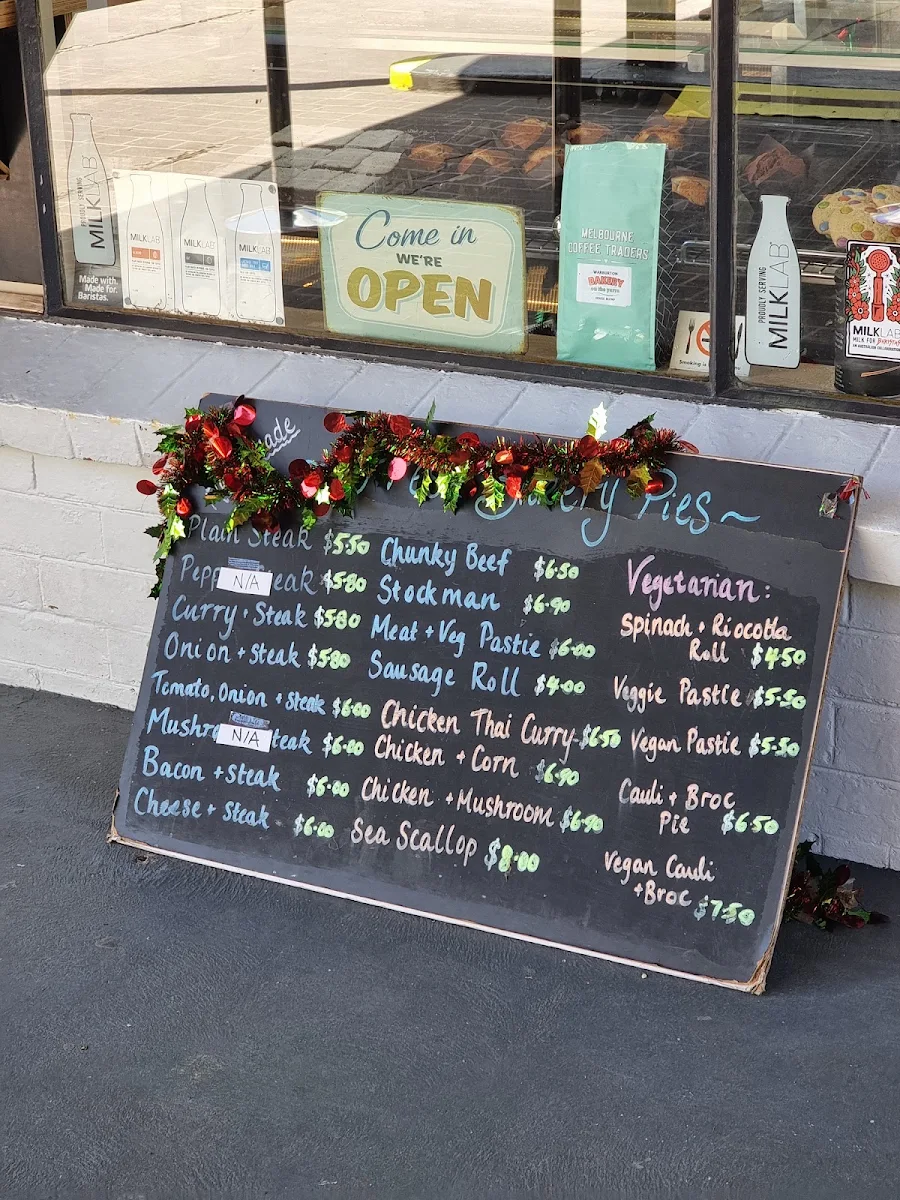 PROUDLY SERVING
MILKLAB
Made with.
Made for.
Baristas.
MILKLAB
MILKLAB
MILKLAB
Come in
WE'RE
OPEN
MELBOURNE
COFFEE TRADERS
WARBURTON
BAKERY
PROUDLY SERVING
MILKLAB
Smoking is
MILKLAB
MILK FOR BARISTAS
made
Bakery Pies~
Plain Steak $5.50
Pep N/A eak $5.80
Curry + Steak $5.80
Onion + Steak $5.80
Tomato, Onion + Steak $6.00
Mushro N/A teak $6.00
Bacon + Steak $6.00
Cheese + Steak $6.00
Chunky Beef $6.50
Stockman $6.90
Meat + Veg Pastie $6.00
Sausage Roll $4.00
Chicken Thai Curry $6.50
Chicken + Corn $6.90
Chicken + Mushroom $6.90
Sea Scallop $8.00
Vegetarian:
Spinach + Riocotta
Roll $4.50
Veggie Pastie $5.50
Vegan Pastie $5.50
Cauli + Broc
Pie $6.50
Vegan Cauli
+ Broc $7.50